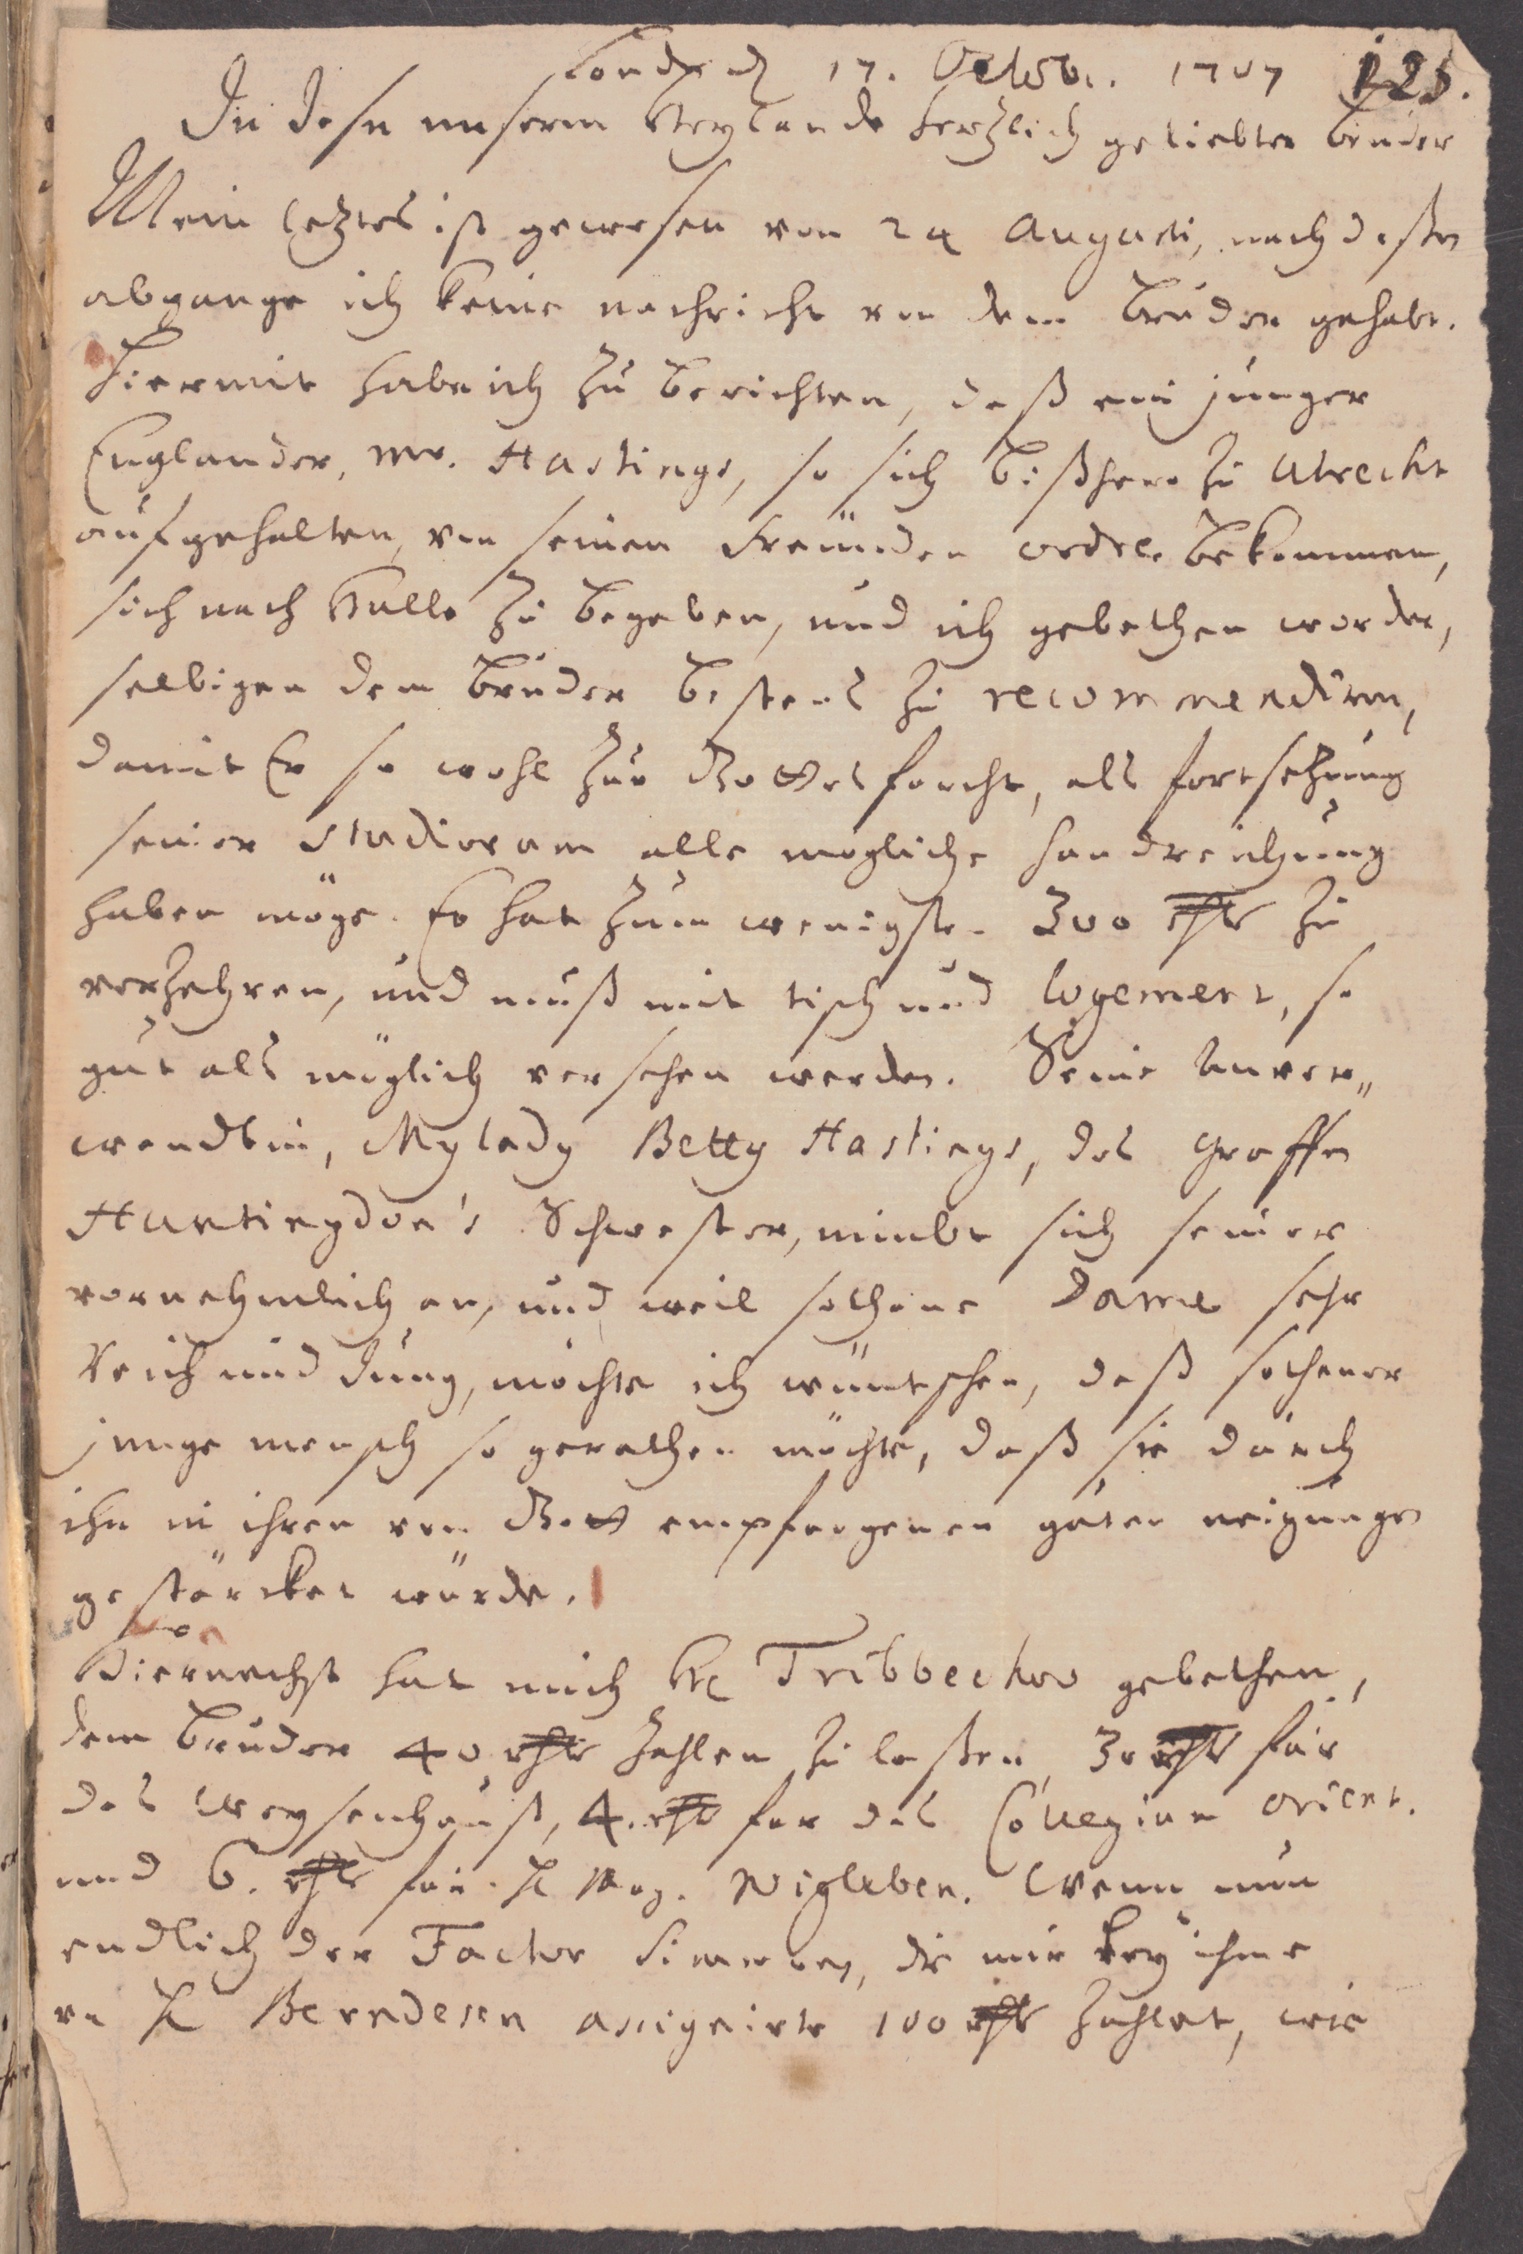 Lond. d. 17. Octobr. 1707 125.
In Jesu unserm Heylande hertzlich geliebter Bruder
Mein letztes ist gewesen von 24 Augusti, nach deßen
abgange ich keine nachricht von dem Bruder gehabt.
Hiermit habe ich zu berichten, daß ein junger
Englander, Mr. Hastings, so sich bißhero zu Utrecht
aufgehalten, von seinen Freunden ordre bekommen,
sich nach Halle zu begeben, und ich gebethen worden,
selbigen dem Bruder bestens zu recommendiren,
damit Er so wohl zur Gottesforcht, als fortsetzung
seiner Studiorum alle mögliche handreichung
haben möge. Er hat zum wenigsten 300 rthlr zu
verzehren, und muß mit tisch und logement, so
gut als möglich versehen werden. Seine Anver„
wandtin, Mylady Betty Hastings, des Graffen
Huntingdon's Schwester, nimbt sich seiner
vornehmlich an, und weil sothane Dame sehr
Reich und Jung, möchte ich wüntschen, daß sothaner
junge mensch so gerathen möchte, daß sie durch
ihn in ihren von Gott empfangenen guten neigungen
gestärcket würde.
Hiernechst hat mich H Tribbechov gebethen,
dem Bruder 40 rthlr zahlen zu laßen, 30 rthlr für
das Waysenhauß, 4. rthlr for das Collegium orient.
und 6. rthlr für H Mag. Wigleben. Wenn nun
endlich der Factor Simmer, die mir bey ihme
von H Berndesen assignirte 100 rthlr zahlet, wie